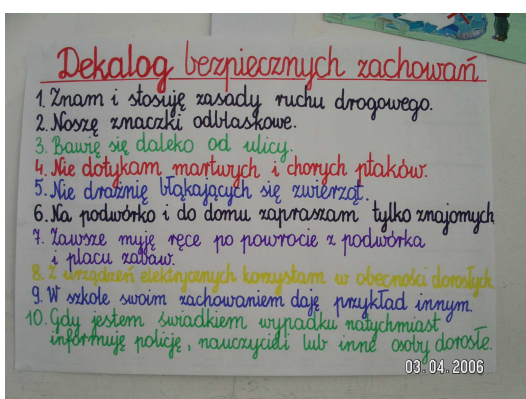 Dekalog bezpiecznych zachowań
1. Znam i stosuję zasady ruchu drogowego.
2. Noszę znaczki odblaskowe.
3. Bawię się daleko od ulicy.
4. Nie dotykam martwych i chorych ptaków.
5. Nie drażnię błąkających się zwierząt.
6. Na podwórko i do domu zapraszam tylko znajomych
7. Zawsze myję ręce po powrocie z podwórka
i placu zabaw.
8. Z urządzeń elektrycznych korzystam w obecności dorosłych
9. W szkole swoim zachowaniem daję przykład innym.
10. Gdy jestem świadkiem wypadku natychmiast
informuję policję, nauczycieli lub inne osoby dorosłe.
03.04.2006